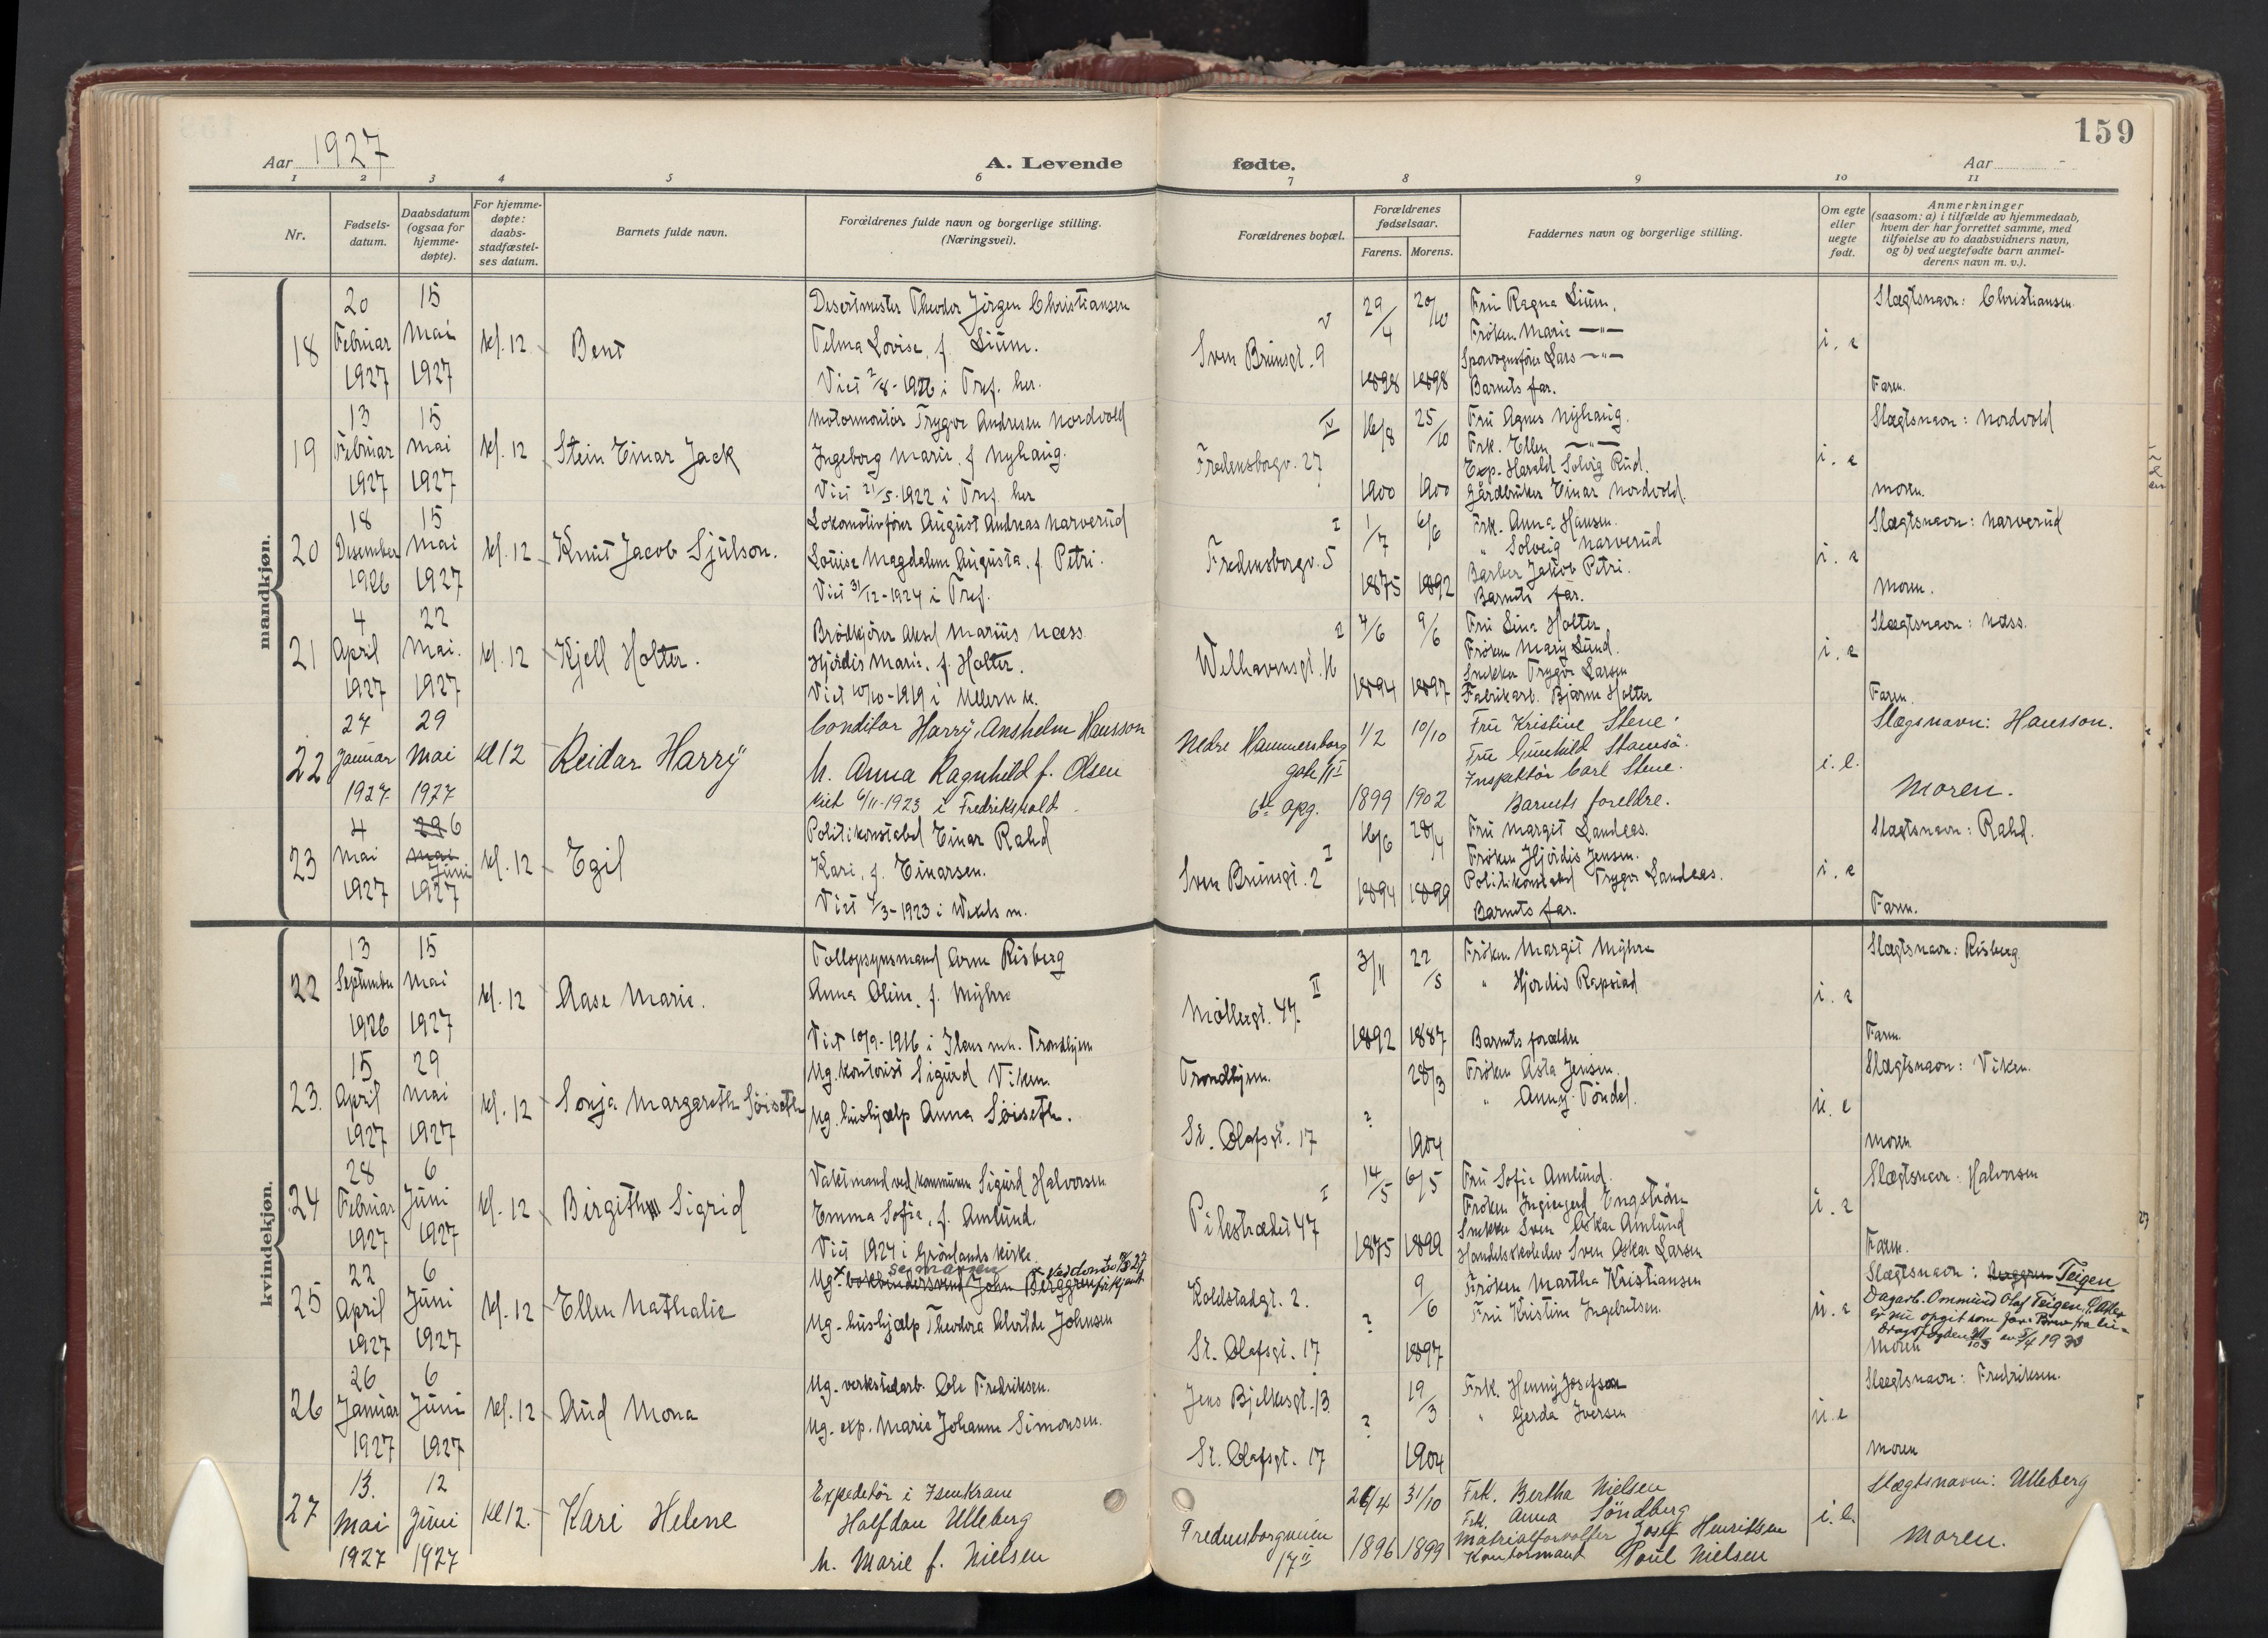 159
Aar 1927
A. Levende
fødte.
Aar
1 2 3 4 5 6 7 8 9 10 11
Nr.
Fødsels-
datum.
Daabsdatum
(ogsaa for
hjemme-
døpte).
For hjemme-
døpte:
daabs-
stadfæstel-
ses datum.
Barnets fulde navn.
Forældrenes fulde navn og borgerlige stilling.
(Næringsvei).
Forældrenes bopæl.
Forældrenes
fødselsaar.
Farens. Morens.
Faddernes navn og borgerlige stilling.
Om egte
eller
uegte
født.
Anmerkninger
(saasom: a) i tilfælde av hjemmedaab,
hvem der har forrettet samme, med
tilføielse av to daabsvidners navn,
og b) ved uegtefødte barn anmel-
derens navn m. v.).
mandkjøn.
18
20
Februar
1927
15
Mai
1927
kl. 12
Bent
Theodor Jörgen Christiansen
Telma Lovise, f. Lium.
Viet 7/8-1926 i Tref. her.
V
Sven Brunsgt. 9
29/4
1898
20/10
1898
Fru Ragna Lium.
Fröken Marie —"—
Sporvognsförer Lars —"—
Barnets far.
i. e
Slægtsnavn: Christiansen.
Faren.
19
13
Februar
1927
15
Mai
1927
kl. 12
Stein Einar Jack
Motormontör Trygve Andresen Nordvold
Ingeborg Marie, f. Nyhaug.
Viet 21/5-1922 i Tref. her
IV
Fredensborgv. 27
16/8
1900
25/10
1900
Fru Agnes Nyhaug.
Frk. Ellen —"—
Exp. Harald Solvig Rud.
Gårdbruker Einar Nordvold.
i. e
Slægtsnavn: Nordvold
Moren.
20
18
Desember
1926
15
Mai
1927
kl. 12
Knut Jacob Sjulson.
Lokomotivförer August Andreas Narverud
Louise Magdalene Augusta, f. Petri.
Viet 31/12-1924 i Tref.
I
Fredensborgv. 5
1/7
1875
6/6
1892
Frk. Anna Hansen.
" Solveig Narverud
Barber Jakob Petri.
Barnets far.
i. e
Slægtsnavn: Narverud
Moren.
21
4
April
1927
22
Mai.
1927
kl. 12
Kjell Holter.
Brödkjörer Aksel Marius Næss
Hjördis Marie, f. Holter.
Viet 10/10-1919 i Ullern k.
Welhavensgt. 16
4/6
1894
9/6
1897
Fru Lina Holter.
Fröken Mary Lund.
Snekker Trygve Larsen
Fabrikarb. Bjarne Holter
i. e
Slægtsnavn: Næss.
Faren.
22
27
Januar
1927
29
Mai
1927
kl 12
Reidar Harry
Conditor Harry Anshelm Hansson
h. Anna Ragnhild f. Olsen
viet 6/11-1923 i Fredrikshald.
Nedre Hammersborg
gate 11 I
6te opg.
1/2
1899
10/10
1902
Fru Kristine Stene.
Fru Gunhild Stamsö.
Inspektör Carl Stene.
Barnets foreldre.
i. e.
Slægsnavn: Hansson.
Moren.
23
4
Mai
1927
29 6
Mai
Juni
1927
kl. 12
Egil
Politikonstabel Einar Rahd
Kari, f. Einarsen.
I
Sven Brunsgt. 2
16/6
1894
28/4
1899
Fru Margit Landaas.
Fröken Hjördis Jensen.
Politikonstabel Trygve Landaas.
Barnets far.
i. e
Slægtsnavn: Rahd.
Faren.
kvindekjøn.
22
13
September
1926
15
Mai
1927
kl. 12
Aase Marie.
Tollopsynsmand Arne Risberg
Anna Oline, f. Myhre
Viet 10/9-1916 i Ilens mn. Trondhjem
II
Möllergt. 47.
3/11
1892
22/5
1887
Fröken Margit Myhre
" Hjördis Rapstad
Barnets forældre
i. e
Slægtsnavn: Risberg
Faren.
23.
15
April
1927
29
Mai
1927
kl. 12
Sonja Margareth Söiseth
Ug. kontorist Sigurd Viken.
Ug. hushjælp Anna Söiseth.
Trondhjem.
St. Olafsgt. 17
?
28/3
1904
Fröken Asta Jensen.
" Anny Töndel.
u. e
Slægtsnavn: Viken.
Moren
24
28
Februar
1927
6
Juni
1927
kl. 12
Birgith Sigrid
Vaktmand ved kommunen Sigurd Halvorsen
Emma Sofie, f. Amlund.
Viet 1924 i Grönlands kirke.
I
Pilestrædet 47
14/5
1875
6/5
1899
Fru Sofie Amlund.
Fröken Ingiergerd Engström
Snekker Sven Oskar Amlund
Handelsskoleelev Sven Oskar Larsen
i. e
Slægtsnavn: Halvorsen
Faren.
25
22
April
1927
6
Juni
1927
kl. 12
Ellen Nathalie
Ug. bokbindersvend John Berggren
Ug. hushjælp Theodora Alvilde Johnsen
Koldstadgt. 2.
St. Olafsgt. 17
?
9/6
1897
Fröken Martha Kristiansen
Fru Kristine Ingebretsen.
u. e
Slægtsnavn: Berggren Teigen
Dagarb. Ommund Olaf Teigen,
er nu opgit som far.
Moren
26
26
Januar
1927
6
Juni
1927
kl. 12
Aud Mona
Ug. verkstedarb. Ole Fredriksen.
Ug. exp. Marie Johanne Simonsen.
Jens Bjelkesgt. 13
St. Olafsgt. 17
?
19/3
1904
Frk. Henny Josefson
" Gerda Iversen
u. e
Slægtsnavn: Fredriksen.
Moren
27
13.
Mai
1927
12
Juni
1927
kl 12.
Kari Helene
Expeditör i Isenkram
Halfdan Ulleberg
h. Marie f. Nielsen
Fredensborgveien
17 II
26/4
1896
31/10
1899
Frk. Bertha Nielsen
Frk. Anna Söndberg
Matrialforvalter Josef Henriksen
Kontormand Poul Nielsen
i. e.
Slægtsnavn: Ulleberg
Moren.